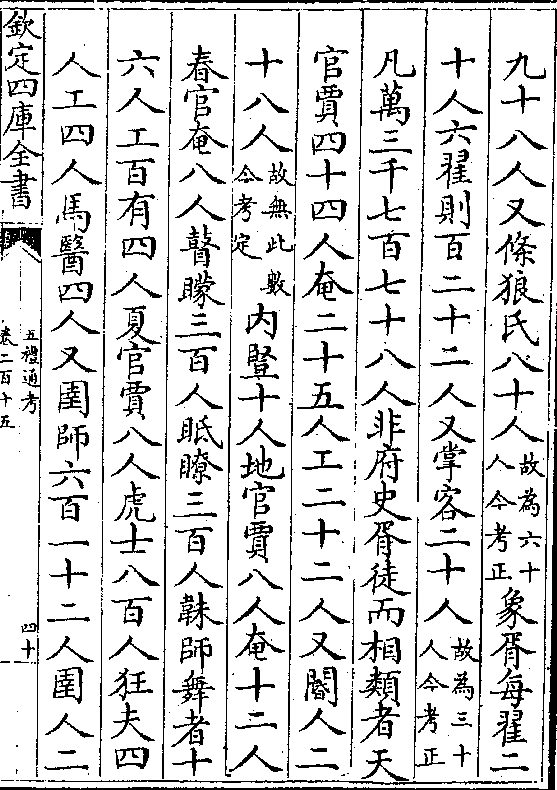 九十八人又條狼氏八十人故為六十人今考正象胥每翟二
十人六翟則百二十二人又掌客二十人故為三十人今考正
凡萬三千七百七十八人非府史胥徒而相類者天
官賈四十四人奄二十五人工二十二人又閽人二
十八人故無此數今考定内豎十人地官賈八人奄十二人
春官奄八人瞽矇三百人眡瞭三百人韎師舞者十
六人工百有四人夏官賈八人虎士八百人狂夫四
人工四人馬醫四人又圉師六百一十二人圉人二
欽定四庫全書
五禮通考
卷二百十五
四十